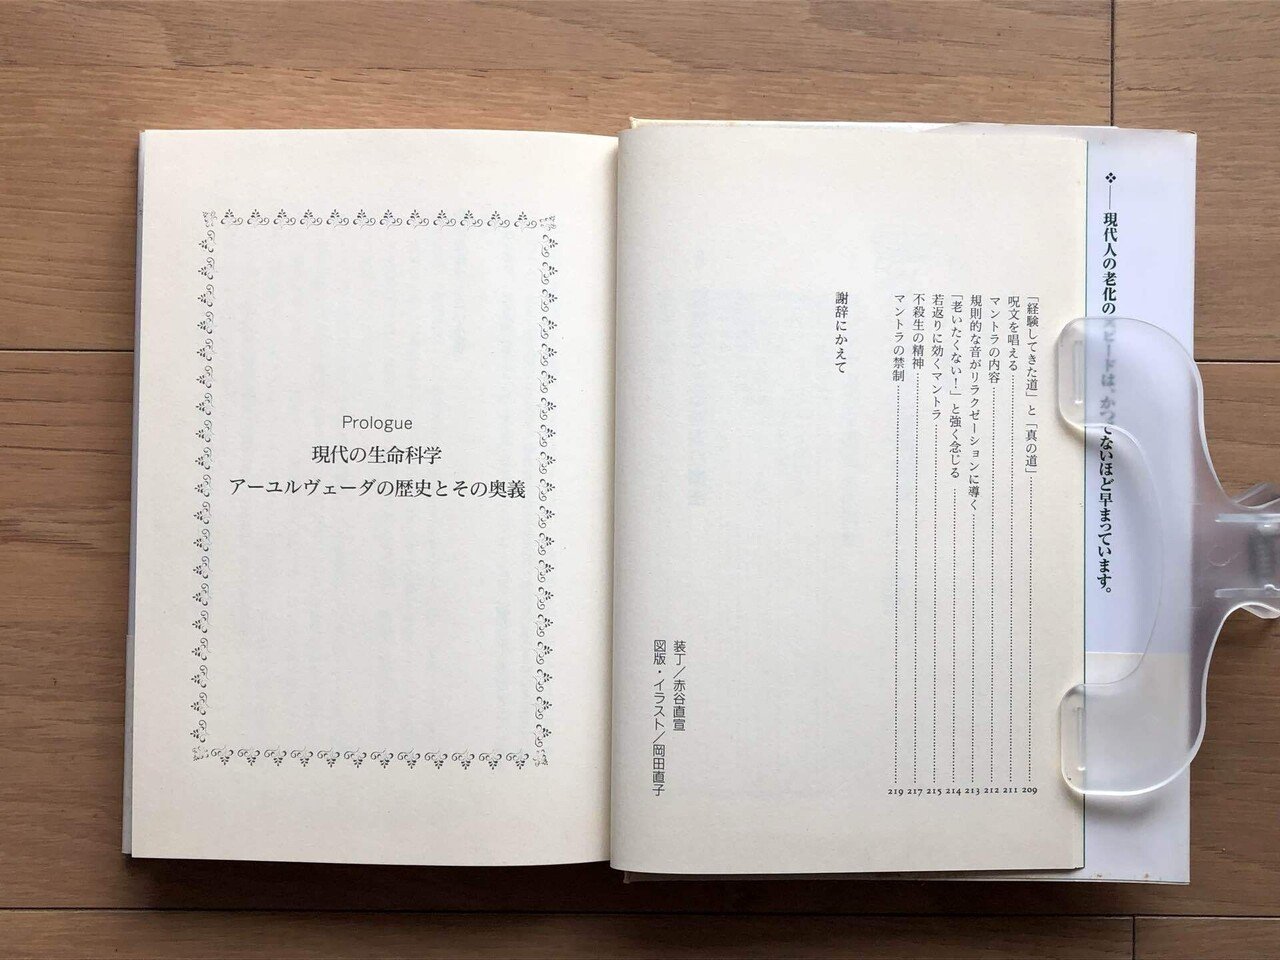 ❖──現代人の老化のスピードは、かつてないほど早まっています。
「経験してきた道」と「真の道」 209
呪文を唱える 211
マントラの内容 212
規則的な音がリラクゼーションに導く 213
「老いたくない！」と強く念じる 214
若返りに効くマントラ 215
不殺生の精神 217
マントラの禁制 219
謝辞にかえて
装丁／赤谷直宣
図版・イラスト／岡田直子
Prologue
現代の生命科学
アーユルヴェーダの歴史とその奥義